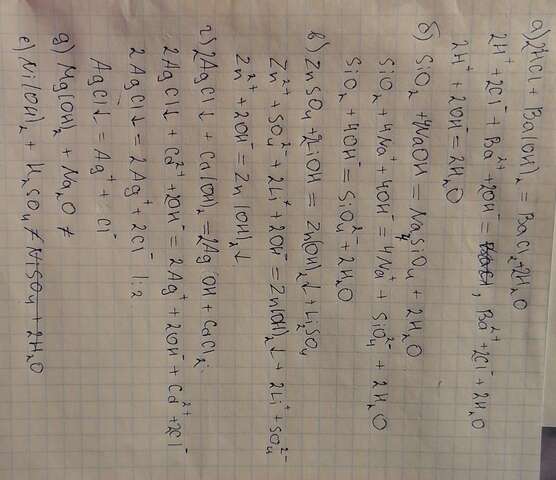 а) 2HCl + Ba(OH)₂ = BaCl₂+2H₂O
2H⁺ + 2Cl⁻ + Ba²⁺ + 2OH⁻ = Ba²⁺ + 2Cl⁻ + 2H₂O
2H⁺ + 2OH⁻ = 2H₂O
б) SiO₂ + 4NaOH = Na₄SiO₄ + 2H₂O
SiO₂ + 4Na⁺ + 4OH⁻ = 4Na⁺ + SiO₄²⁻ + 2H₂O
SiO₂ + 4OH⁻ = SiO₄²⁻ + 2H₂O
в) ZnSO₄ + 2LiOH = Zn(OH)₂↓ + Li₂SO₄
Zn²⁺ + SO₄²⁻ + 2Li⁺ + 2OH⁻ = Zn(OH)₂↓ + 2Li⁺ + SO₄²⁻
Zn²⁺ + 2OH⁻ = Zn(OH)₂↓
г) 2AgCl↓ + Ca(OH)₂ = 2AgOH + CaCl₂
2AgCl↓ + Cd²⁺ + 2OH⁻ = 2Ag⁺ + 2OH⁻ + Cd²⁺ + 2Cl⁻
2AgCl↓ = 2Ag⁺ + 2Cl⁻ |:2
AgCl↓ = Ag⁺ + Cl⁻
д) Mg(OH)₂ + Na₂O ≠
е) Ni(OH)₂ + H₂SO₄ ≠ NiSO₄ + 2H₂O